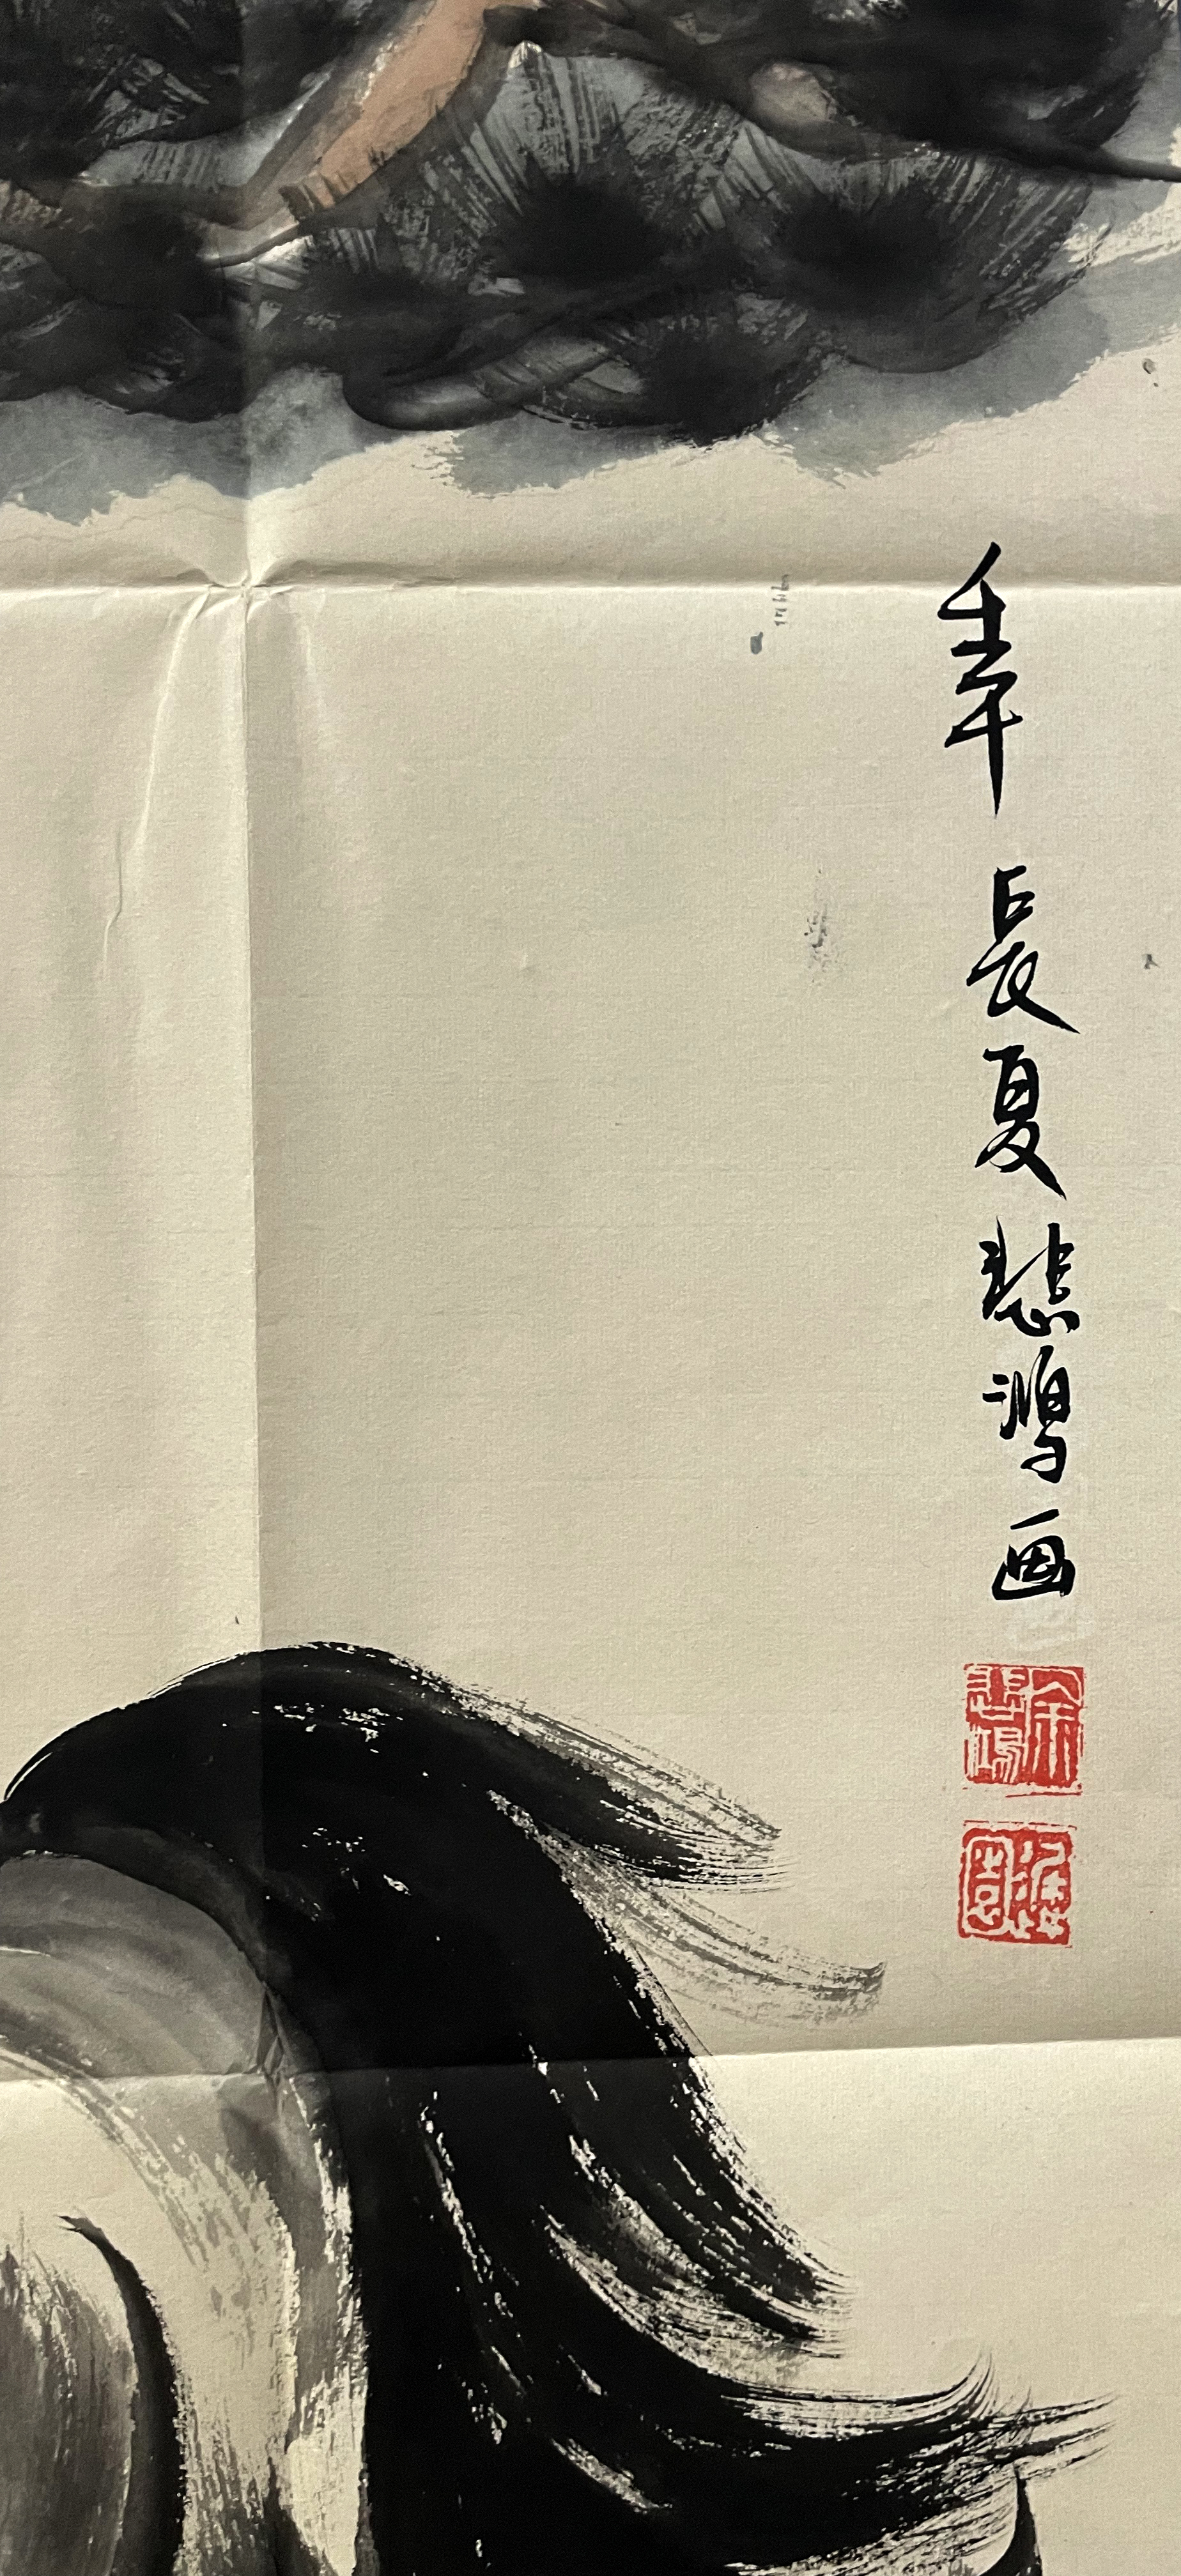 壬午長夏悲鴻画
徐悲鴻